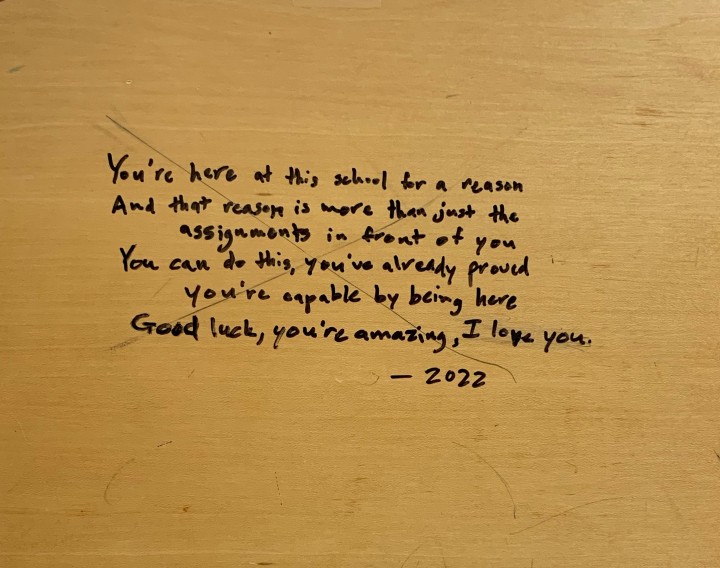 You're here at this school for a reason
And that reason is more than just the
assignments in front of you
You can do this, you've already proved
you're capable by being here
Good luck, you're amazing, I love you.
— 2022